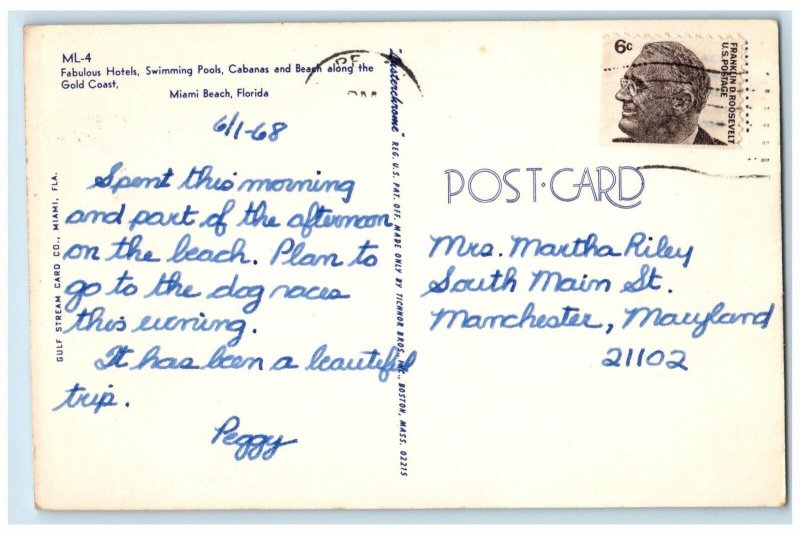 ML-4
Fabulous Hotels, Swimming Pools, Cabanas and Beach along the
Gold Coast,
Miami Beach, Florida
6/1-68
Spent this morning
and part of the afternoon
on the beach. Plan to
go to the dog races
this evening.
It has been a beautiful
trip.
Peggy
GULF STREAM CARD CO., MIAMI, FLA.
REG. U.S. PAT. OFF. MADE ONLY BY TICHNOR BROS., INC., BOSTON, MASS. 02215
6c
FRANKLIN D. ROOSEVELT
U.S. POSTAGE
PM
POST·CARD
Mrs. Martha Riley
South Main St.
Manchester, Maryland
21102